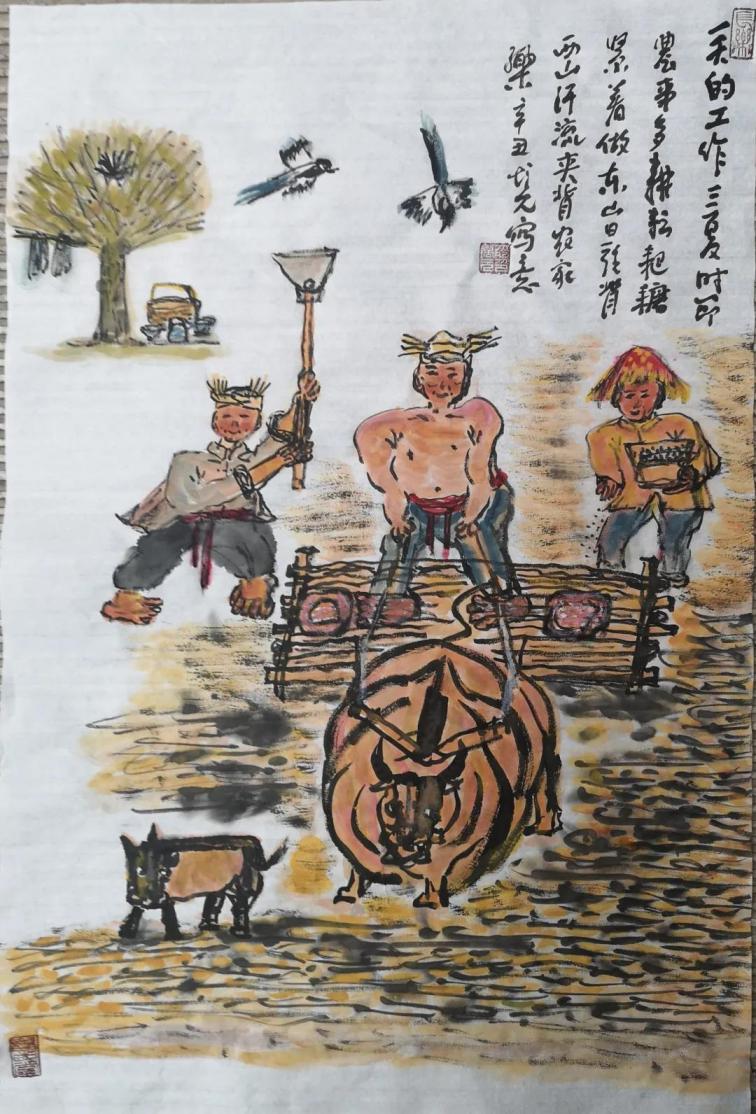 一天的工作三夏时节
農事多耕耘耙耱
紧着做东山日头背
西山汗流夹背农家
樂辛丑元寫意